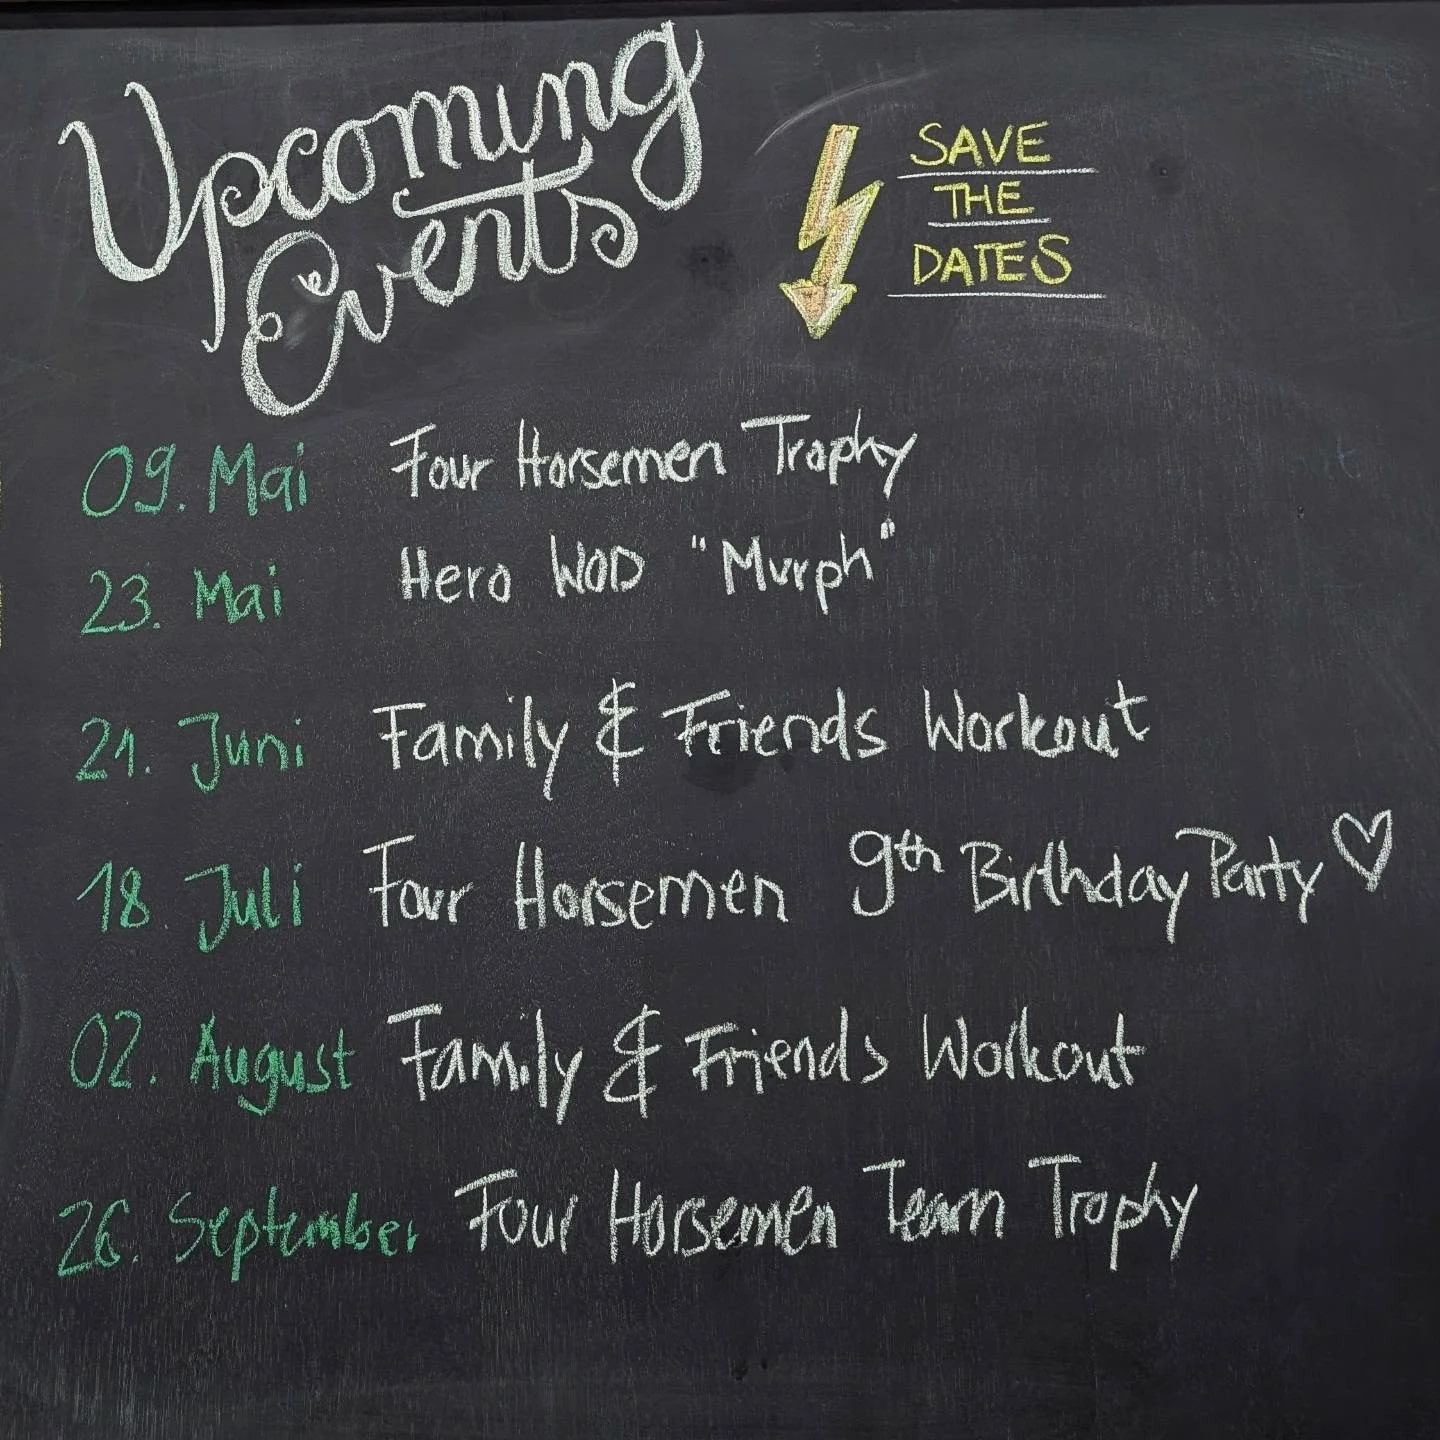 Upcoming
Events
SAVE
THE
DATES
09. Mai Four Horsemen Trophy
23. Mai Hero WOD "Murph"
21. Juni Family & Friends Workout
18. Juli Four Horsemen 9th Birthday Party ♡
02. August Family & Friends Workout
26. September Four Horsemen Team Trophy